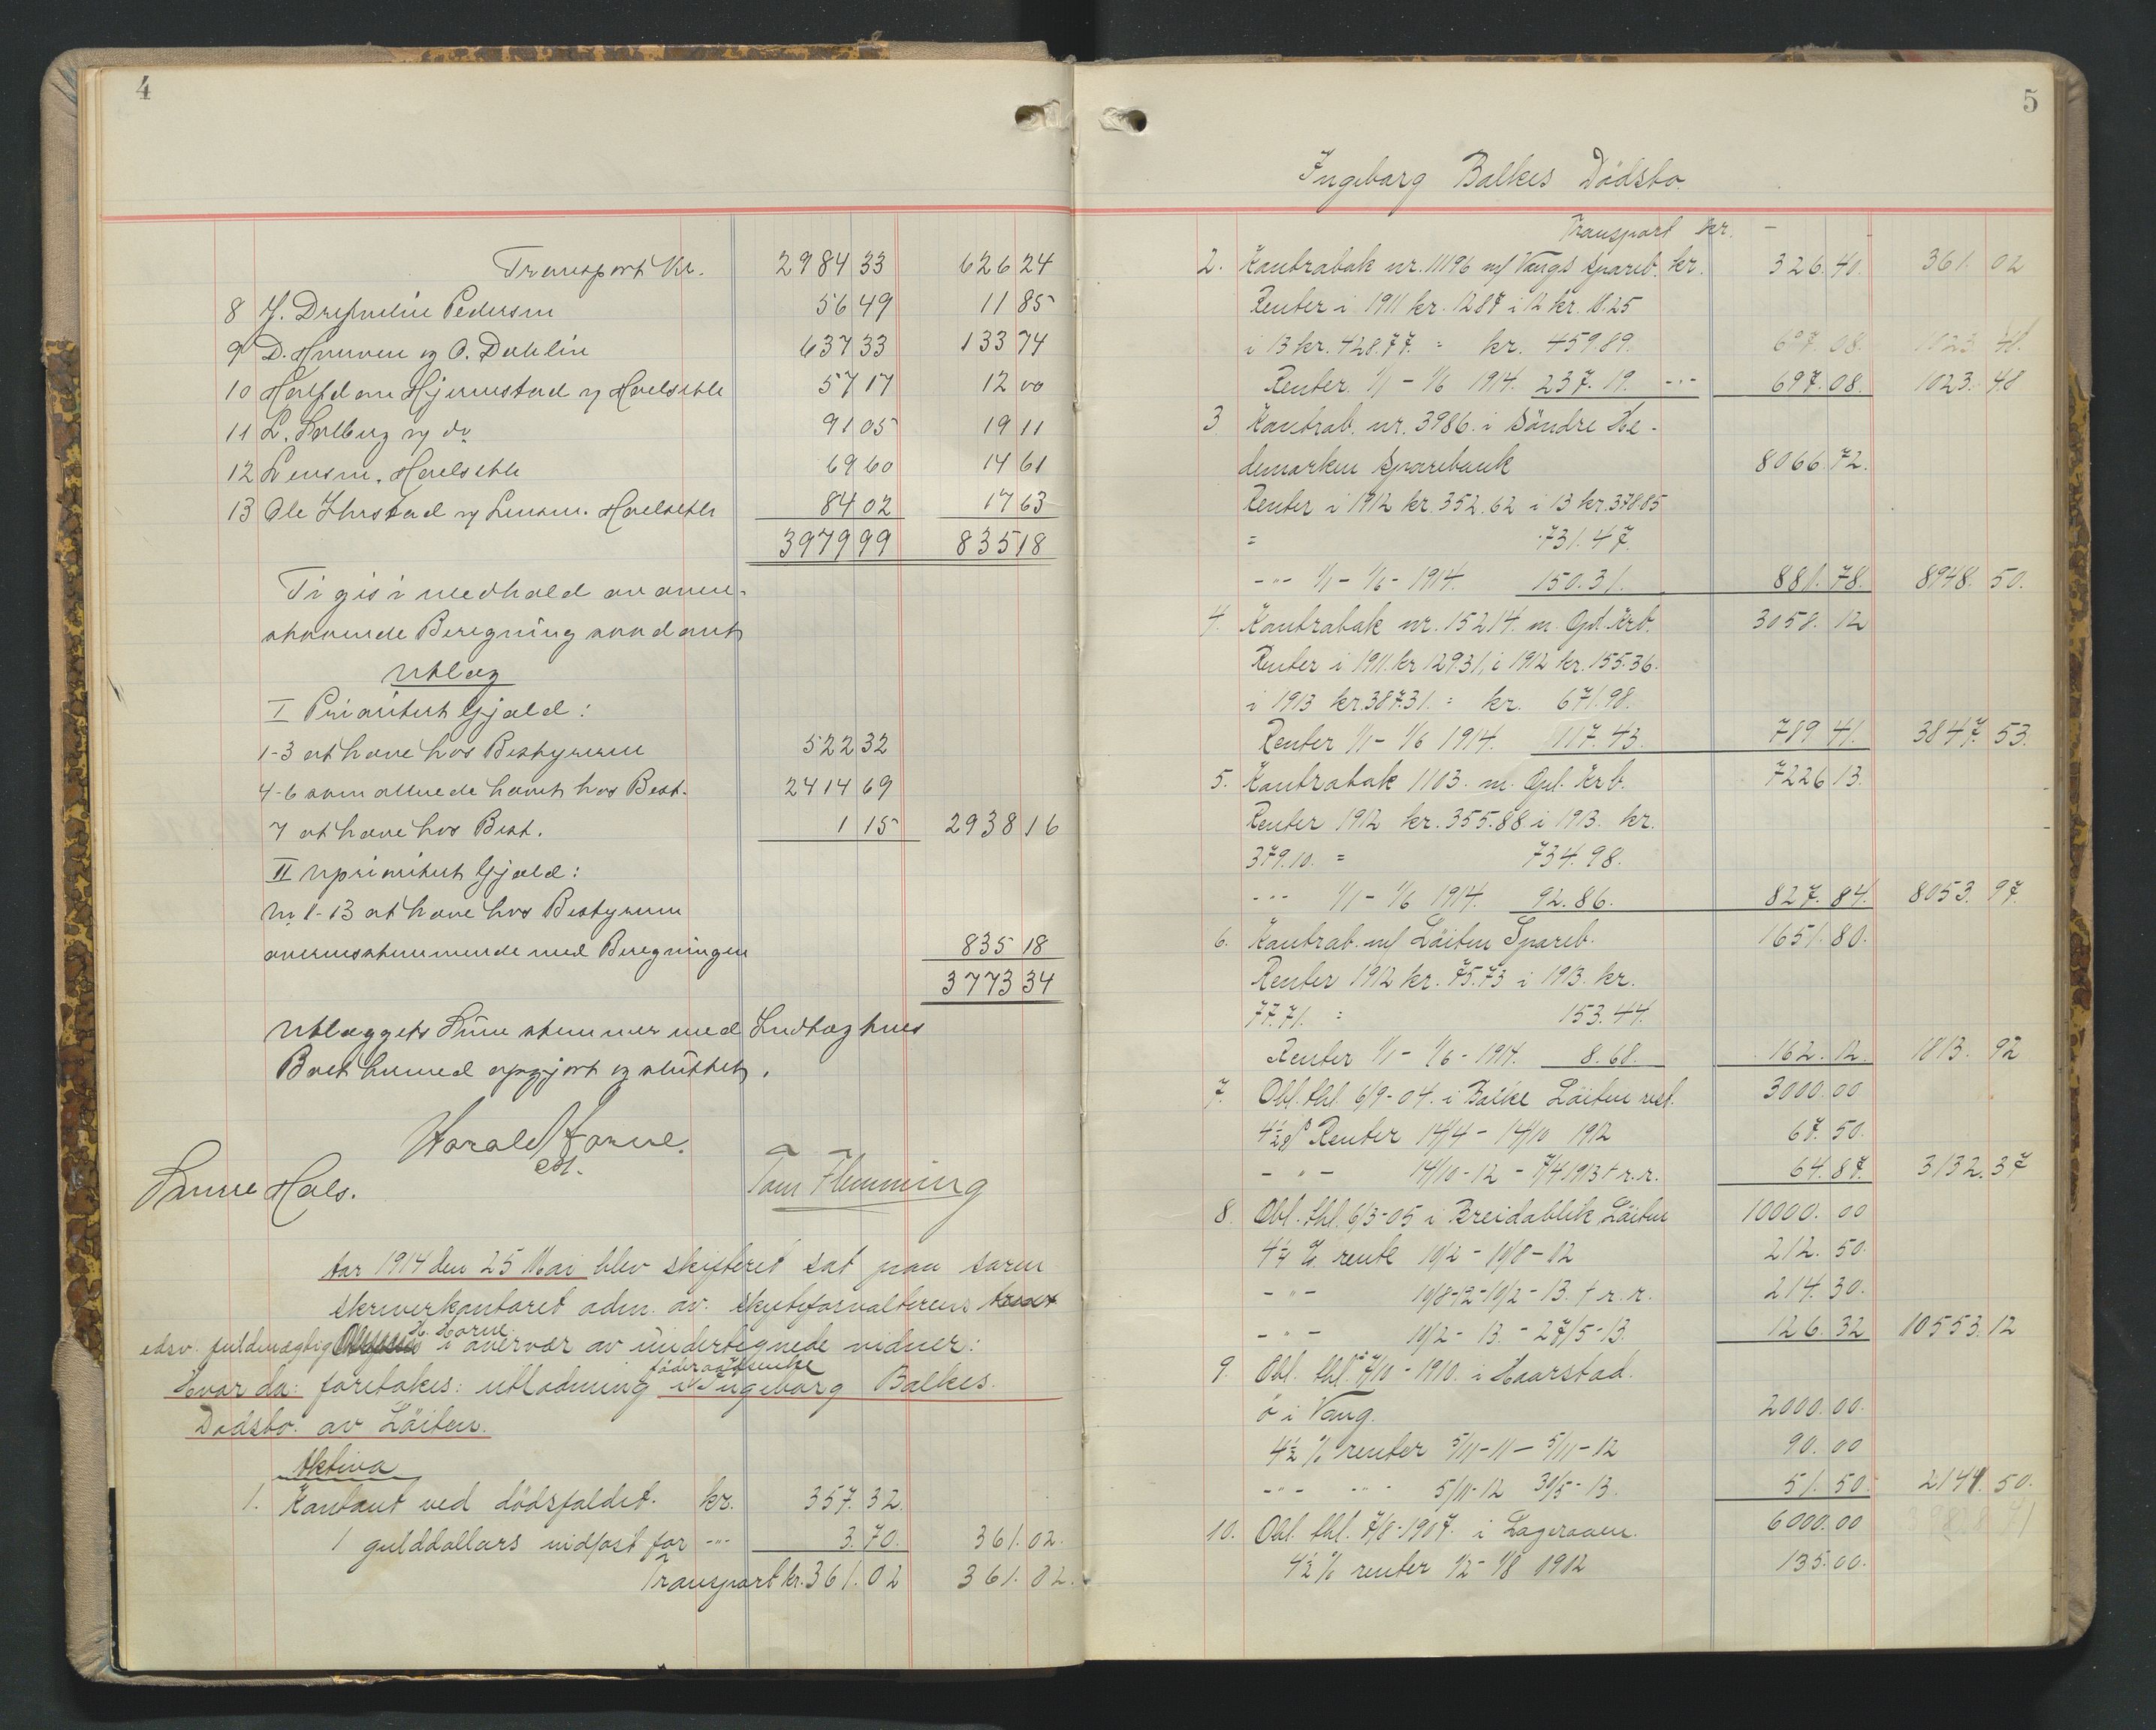 4
Transport Kr. 2984 33 626 24
8 J. Pedersen 56 49 11 85
9 D. og O. Dæhlin 637 33 133 74
10 Halfdan Hjermstad og Hoelseth 57 17 12 00
11 L. Solberg og do 91 05 19 11
12 Lensm. Hoelseth 69 60 14 61
13 Ole Ihrstad og Lensm. Hoelseth 84 02 17 63
3979 99 835 18
Ti gis i medhold av oven-
staaende Beregning saadant
Utlæg
I Prioritert Gjæld:
1-3 at have hos Bestyreren 522 32
4-6 som allerede hævet hos Best. 2414 69
7 at have hos Best. 1 15 2938 16
II Uprioritert Gjæld:
Nr 1-13 at have hos Bestyreren
overensstemmende med Beregningen 835 18
3773 34
Utlæggets Sum stemmer med Indtægternes
Boet hermed opgjort og sluttet.
Harald Horne
cst.
Hals.
Tom Flemming
Aar 1914 den 25 Mai blev skifteret sat paa soren
skriverkontoret adm. av. skifteforvalterens
edsv. fuldmægtig H. Horne i overvær av undertegnede vidner:
Hvor da: foretokes: utlodning i føderaadsenke Ingeborg Balkes
Dødsbo. av Løiten.
Aktiva
1. Kontant ved dödsfaldet. kr. 357. 32.
1 gulddollars indløst for -"- 3. 70. 361. 02.
Transport kr. 361. 02 361. 02.
5
Ingeborg Balkes Dödsbo.
Transport kr. -
2. Kontrabok nr. 11196 m/ Vangs spareb. kr. 326. 40. 361. 02
Renter i 1911 kr. 12.87 i 12 kr. 18.25
i 13 kr. 428.77. = kr. 459 89. 697. 08. 1023. 48.
Renter 1/1 - 1/6 1914. 237. 19. -"- 697. 08. 1023. 48
3 Kontrab. nr. 3986. i Söndre He-
demarken Sparebank 8066. 72.
Renter i 1912 kr. 352. 62 i 13 kr. 378.85
= 731. 47.
-"- 1/1 - 1/6 - 1914. 150. 31. 881. 78. 8948. 50.
4. Kontrabok nr. 15214. m. Opl. Krb. 3058. 12
Renter i 1911 kr 129 31, i 1912 kr. 155.36.
i 1913 kr. 387.31. = kr. 671. 98.
Renter 1/1 - 1/6 1914. 117. 43. 789. 41. 3847. 53.
5. Kontrabok 1103. m. Opl. Krb. 7226 13.
Renter 1912 kr. 355.88 i 1913. kr.
379.10. = 734. 98.
-"- 1/1 - 1/6 1914. 92. 86. 827. 84. 8053. 97.
6. Kontrab. m/ Löiten Spareb. 1651. 80.
Renter 1912 kr. 75.73 i 1913. kr.
77.71. = 153. 44.
Renter 1/1 - 1/6 - 1914. 8. 68. 162. 12. 1813. 92
7. Obl. thl. 6/9-04. i Balke Löiten rest. 3000. 00
4½ % Renter 14/4 - 14/10 1912 67. 50.
- " - 14/10-12 - 7/4 1913 + r. r. 64. 87. 3132. 37
8. Obl. thl. 6/3-05 i Breidablik Löiten 10000. 00
4¼ % rente 10/2 - 10/8 - 12 212. 50.
- " - 10/8-12-10/2-13. + r. r. 214. 30.
- " - 10/2 - 13. - 27/5-13. 126. 32 10553. 12
9. Obl. thl. 7/10 - 1910. i Haarstad.
ö i Vang. 2000. 00.
4½ % renter 5/11-11 - 5/11-12 90. 00
-"- -"- 5/11-12 30/5-13. 51. 50. 2141. 50.
10. Obl. thl. 7/8-1907. i Lageraaen. 6000. 00
4½ % renter 1/2 - 1/8 1912 135. 00.